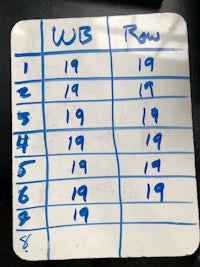 WB Row
1 19 19
2 19 19
3 19 19
4 19 19
5 19 19
6 19 19
19
8